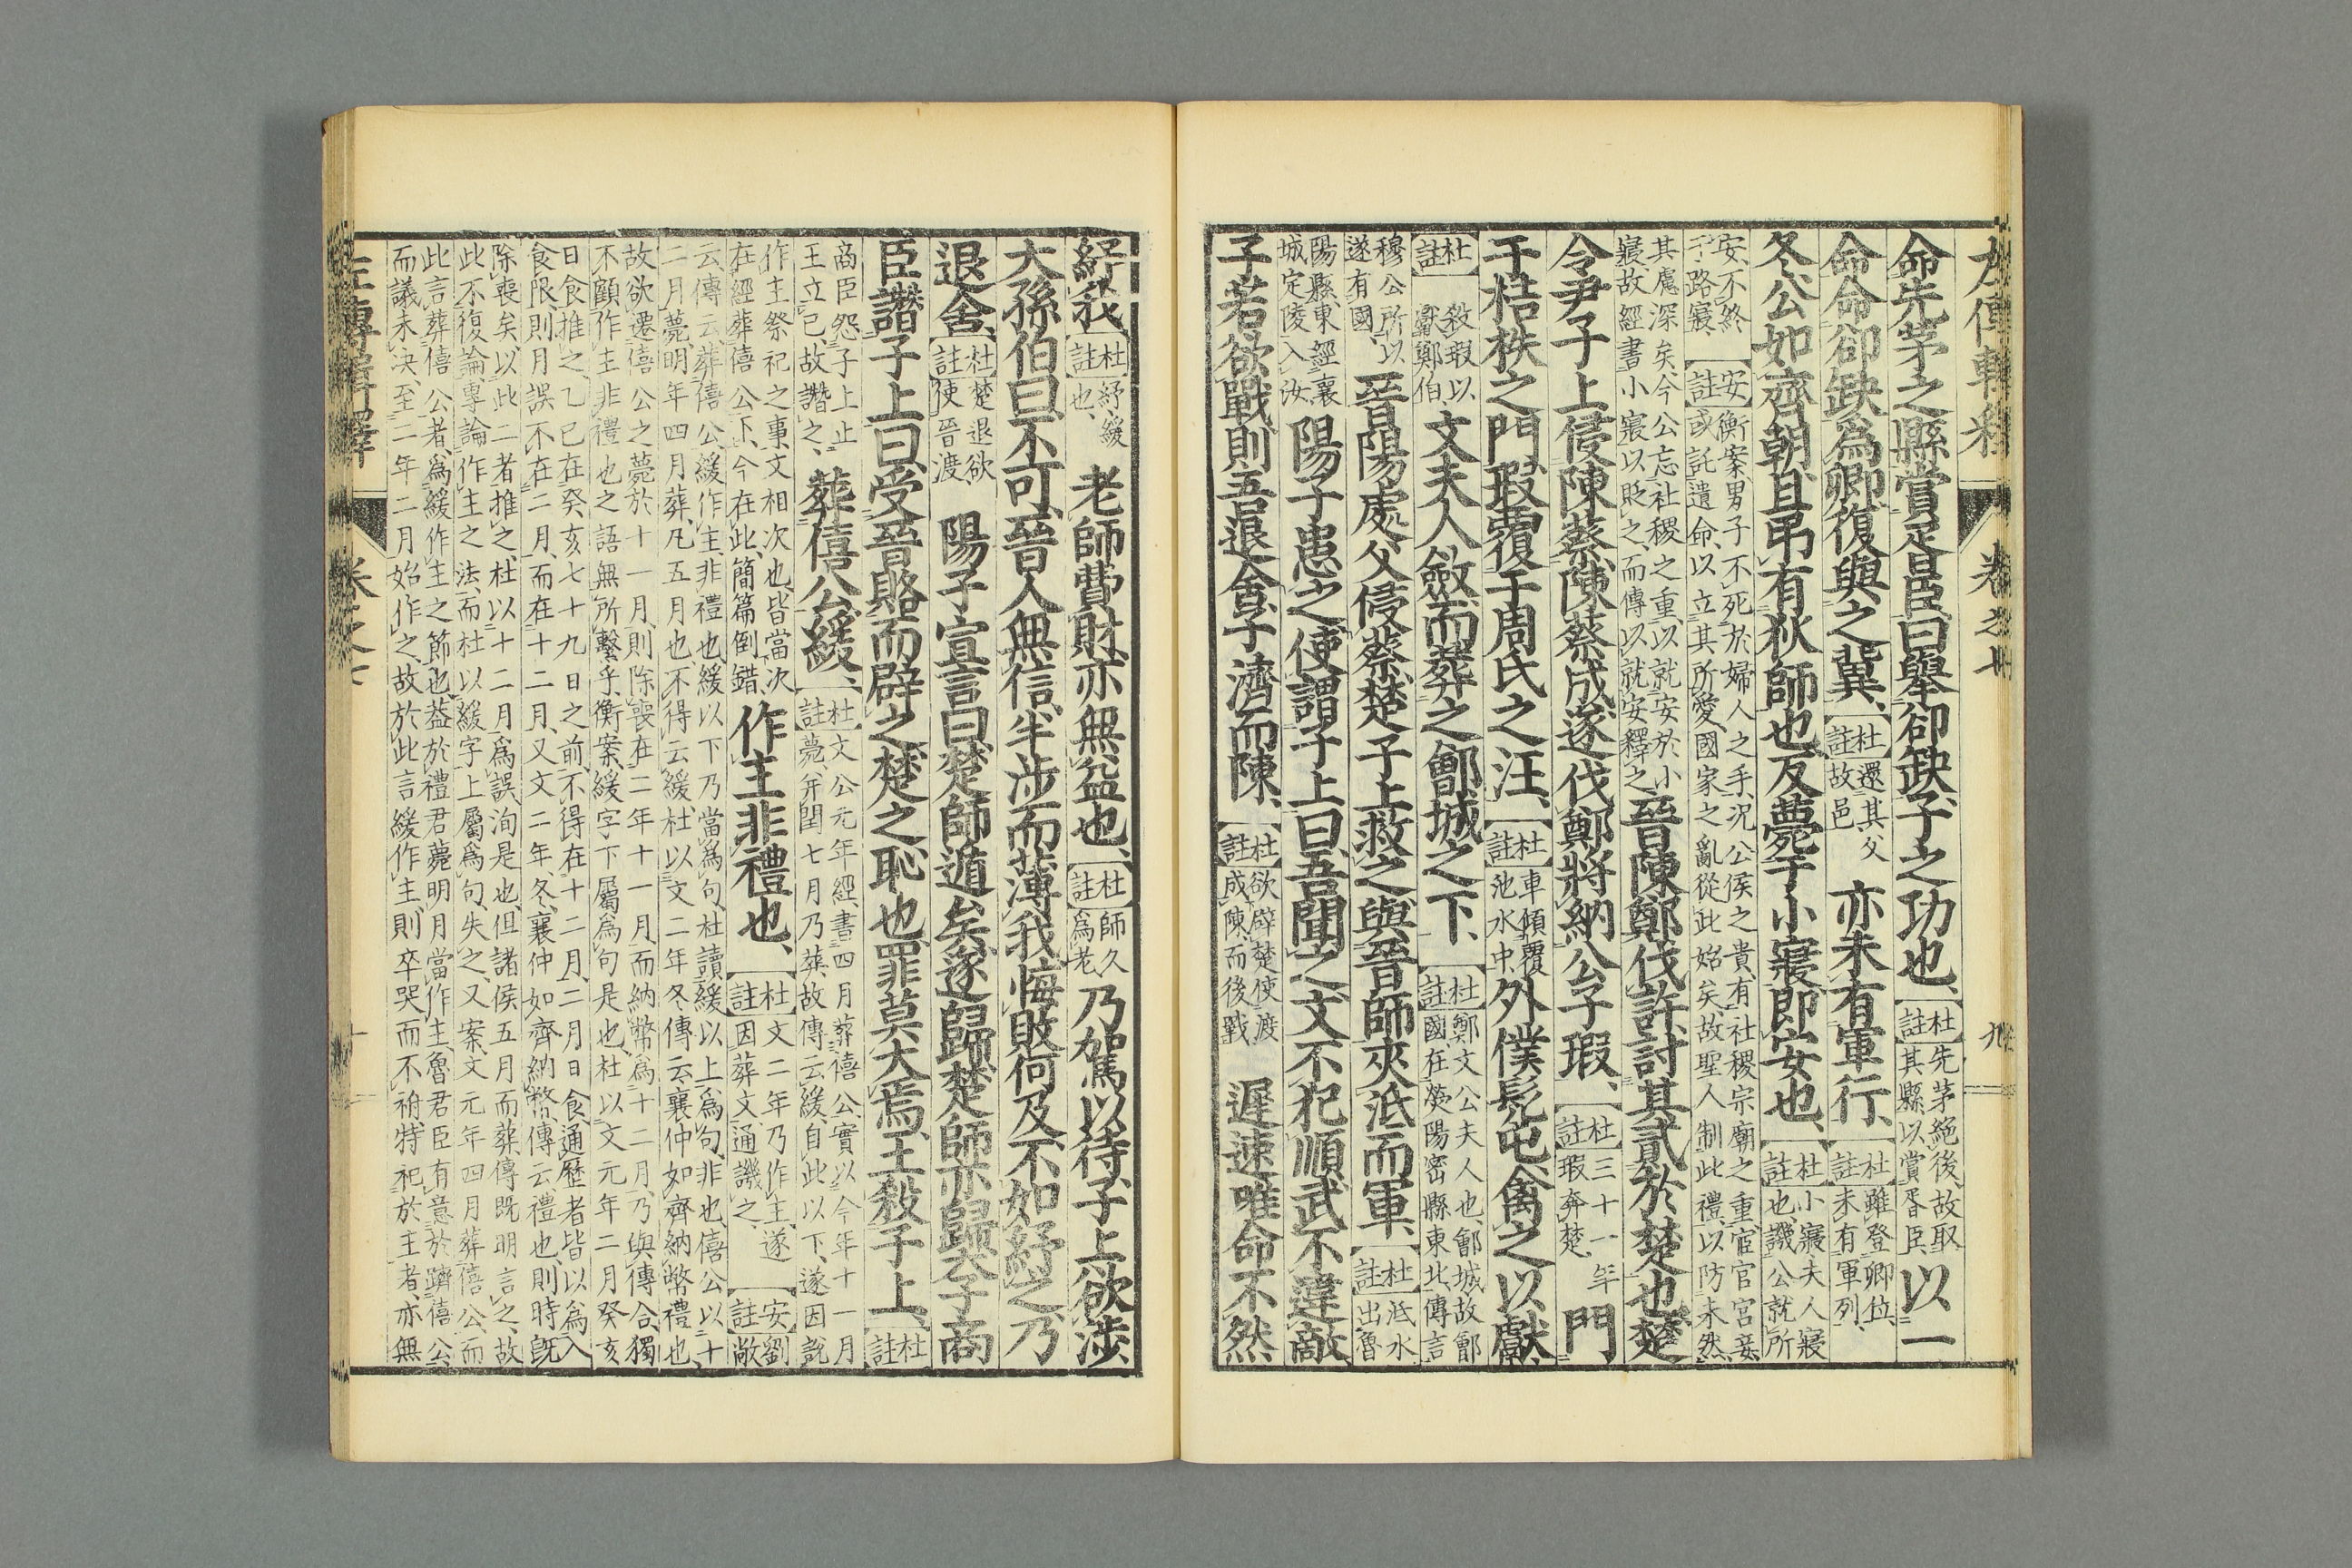 左傳輯釋　卷之七　九
命先茅之縣賞胥臣、曰、擧郤缺、子之功也、杜註先茅絶後、故取其縣以賞胥臣、以一
命命郤缺爲卿、復與之冀、杜註還其父故邑亦未有軍行、杜註雖登卿位、未有軍列、
冬、公如齊朝、且弔有狄師也、反薨于小寢、即安也、杜註小寢、夫人寢也、譏公就所
安、不終于路寢、安註衡案、男子不死於婦人之手、況公侯之貴、有社稷宗廟之重、宦官宮妾或託遺命、以立其所愛、國家之亂從此始矣、故聖人制此禮、以防未然、
其慮深矣、今公忘社稷之重、以就安於小寢、故經書小寢以貶之、而傳以就安釋之、晉陳鄭伐許、討其貳於楚也、楚
令尹子上侵陳蔡、陳蔡成、遂伐鄭、將納公子瑕、杜註三十一年瑕奔楚、門
于桔柣之門、瑕覆于周氏之汪、杜註車傾覆池水中、外僕髡屯禽之以獻、
杜註殺瑕以獻鄭伯、文夫人斂而葬之鄶城之下、杜註鄭文公夫人也、鄶城故鄶國、在滎陽密縣東北、傳言
穆公所以遂有國、晉陽處父侵蔡、楚子上救之、與晉師夾泜而軍、杜註泜水出魯
陽縣東、經襄城定陵入汝、陽子患之、使謂子上曰、吾聞之、文不犯順、武不違敵、
子若欲戰、則吾退舍、子濟而陳、杜註欲辟楚使渡成陳而後戰遲速唯命、不然
紓我、杜註紓、緩也、老師費財、亦無益也、杜註師久爲老、乃駕以待、子上欲涉、
大孫伯曰、不可、晉人無信、半涉而薄我、悔敗何及、不如紓之、乃
退舍、杜註楚退、欲使晉渡陽子宣言曰、楚師遁矣、遂歸、楚師亦歸、大子商
臣譖子上曰、受晉賂而辟之、楚之恥也、罪莫大焉、王殺子上、杜註
商臣怨子上止王立己、故譖之、葬僖公、緩、杜註文公元年、經書四月葬僖公、實以今年十一月薨、并閏七月乃葬、故傳云緩、自此以下、遂因說
作主祭祀之事、文相次也、皆當次在經葬僖公下、今在此、簡篇倒錯、作主非禮也、杜註文二年乃作主、遂因葬文、通譏之、安註劉敞
云、傳云、葬僖公、緩作主、非禮也、緩以下乃當爲句、杜讀緩以上爲句、非也、僖公以十二月薨、明年四月葬、凡五月也、不得云緩、杜以文二年冬、傳云、襄仲如齊納幣、禮也、
故欲遷僖公之薨於十一月、則除喪在二年十一月、而納幣爲十二月、乃與傳合、獨不顧作主非禮也之語無所繫乎、衡案、緩字下屬爲句是也、杜以文元年二月癸亥
日食推之、乙巳在癸亥七十九日之前、不得在十二月、二月日食、通歷者皆以爲入食限、則月誤不在二月、而在十二月、又文二年、冬、襄仲如齊納幣、傳云禮也、則時既
除喪矣、以此二者推之、杜以十二月爲誤、洵是也、但諸侯五月而葬、傳既明言之、故此不復論、專論作主之法、而杜以緩字上屬爲句、失之、又案、文元年四月葬僖公、而
此言葬僖公者、爲緩作主之節也、葢於禮君薨明月當作主、魯君臣有意於躋僖公、而議未決、至二年二月始作之、故於此言緩作主、則卒哭而不祔、特祀於主者、亦無
左傳輯釋　卷之七